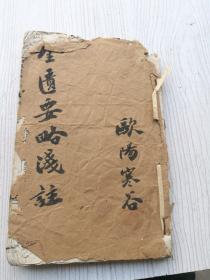 歐陽寒谷
金匱要略淺註